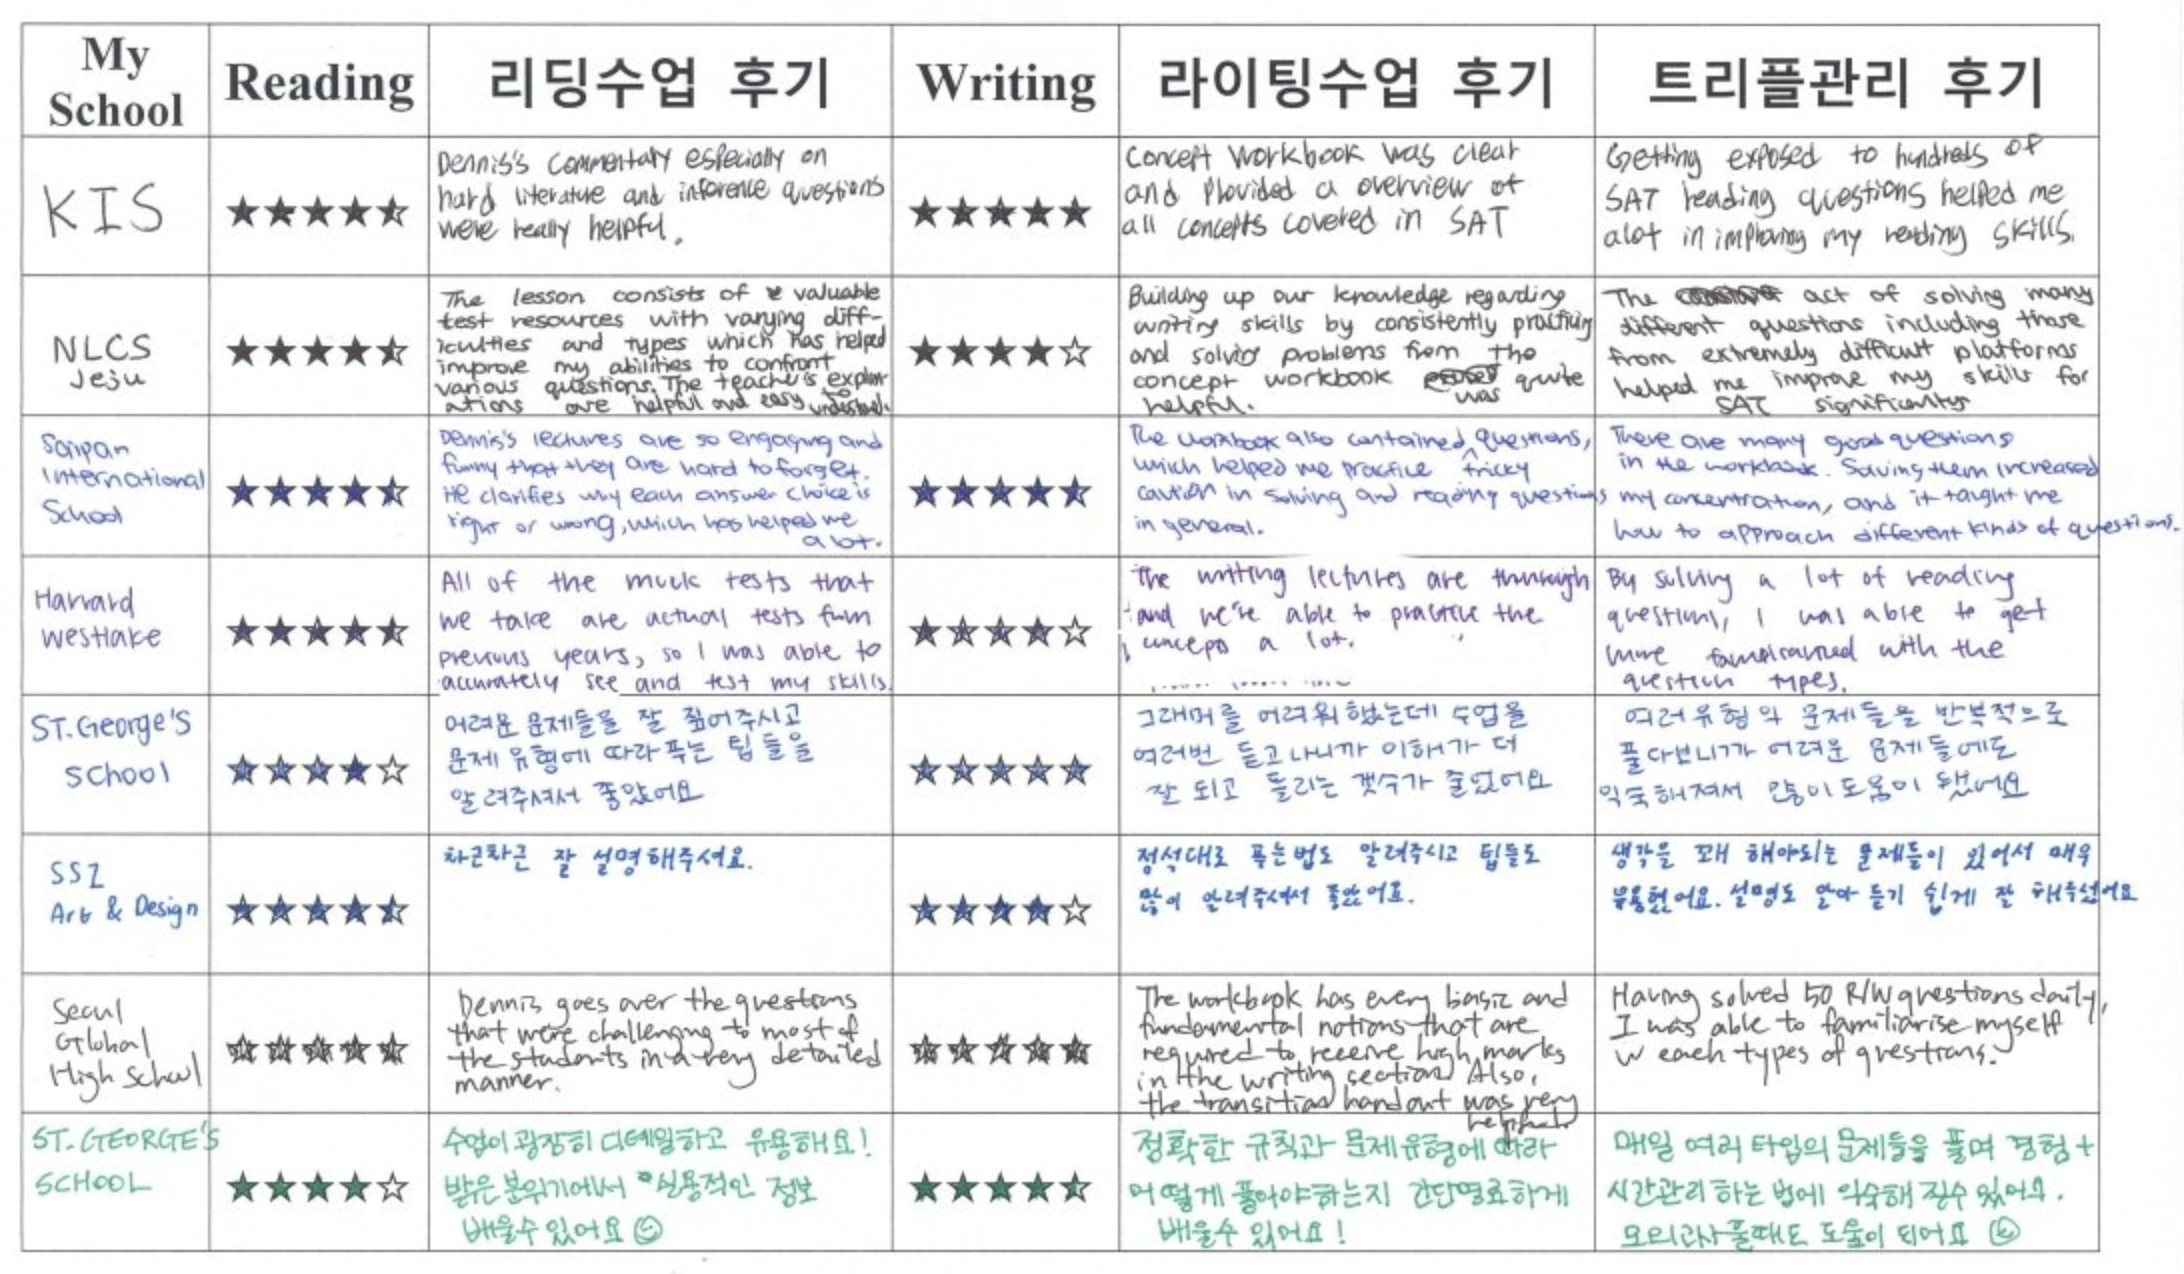 My School
Reading
리딩수업 후기
Writing
라이팅수업 후기
트리플관리 후기
KIS
Dennis's commentary especially on
hard literature and inference questions
were really helpful.
Concept workbook was clear
and provided a overview of
all concepts covered in SAT
Getting exposed to hundreds of
SAT reading questions helped me
alot in improving my reading skills.
NLCS
Jeju
The lesson consists of valuable
test resources with varying diff-
iculties and types which has helped
improve my abilities to confront
various questions. The teacher's explan
ations are helpful and easy to understand.
Building up our knowledge regarding
writing skills by consistently practicing
and solving problems from the
concept workbook was quite
helpful.
The act of solving many
different questions including those
from extremely difficult platforms
helped me improve my skills for
SAT significantly
Saipan
International
School
Dennis's lectures are so engaging and
funny that they are hard to forget.
He clarifies why each answer choice is
right or wrong, which has helped me
a lot.
The workbook also contained tricky questions,
which helped me practice
caution in solving and reading questions
in general.
There are many good questions
in the workbook. Solving them increased
my concentration, and it taught me
how to approach different kinds of questions.
Harvard
Westlake
All of the mock tests that
we take are actual tests from
previous years, so I was able to
accurately see and test my skills.
The writing lectures are thorough
and we're able to practice the
concepts a lot.
By solving a lot of reading
questions, I was able to get
more with the
question types.
ST. George's
School
어려운 문제들을 잘 짚어주시고
문제 유형에 따라 푸는 팁들을
알려주셔서 좋았어요
그래머를 어려워했는데 수업을
여러번 듣고나니까 이해가 더
잘 되고 틀리는 갯수가 줄었어요
여러유형의 문제들을 반복적으로
풀다보니까 어려운 문제들에도
익숙해져서 많이 도움이 됐어요
SSZ
Art & Design
차근차근 잘 설명해주셔요.
정석대로 푸는법도 알려주시고 팁들도
많이 알려주셔서 좋았어요.
생각을 꽤 해야되는 문제들이 있어서 매우
유용했어요. 설명도 알아 듣기 쉽게 잘 해주셨어요
Seoul
Global
High School
Dennis goes over the questions
that were challenging to most of
the students in a very detailed
manner.
The workbook has every basic and
fundamental notions that are
required to receive high marks
in the writing section. Also,
the transition handout was very
helpful
Having solved 50 R/W questions daily,
I was able to familiarise myself
w each types of questions.
ST. GEORGE'S
SCHOOL
수업이 굉장히 디테일하고 유용해요!
밝은 분위기에서 실용적인 정보
배울수 있어요
정확한 규칙과 문제유형에 따라
어떻게 풀어야하는지 간단명료하게
배울수 있어요!
매일 여러 타입의 문제들을 풀며 경험 +
시간관리 하는 법에 익숙해 질수 있어요.
모의고사 풀때도 도움이 되어요